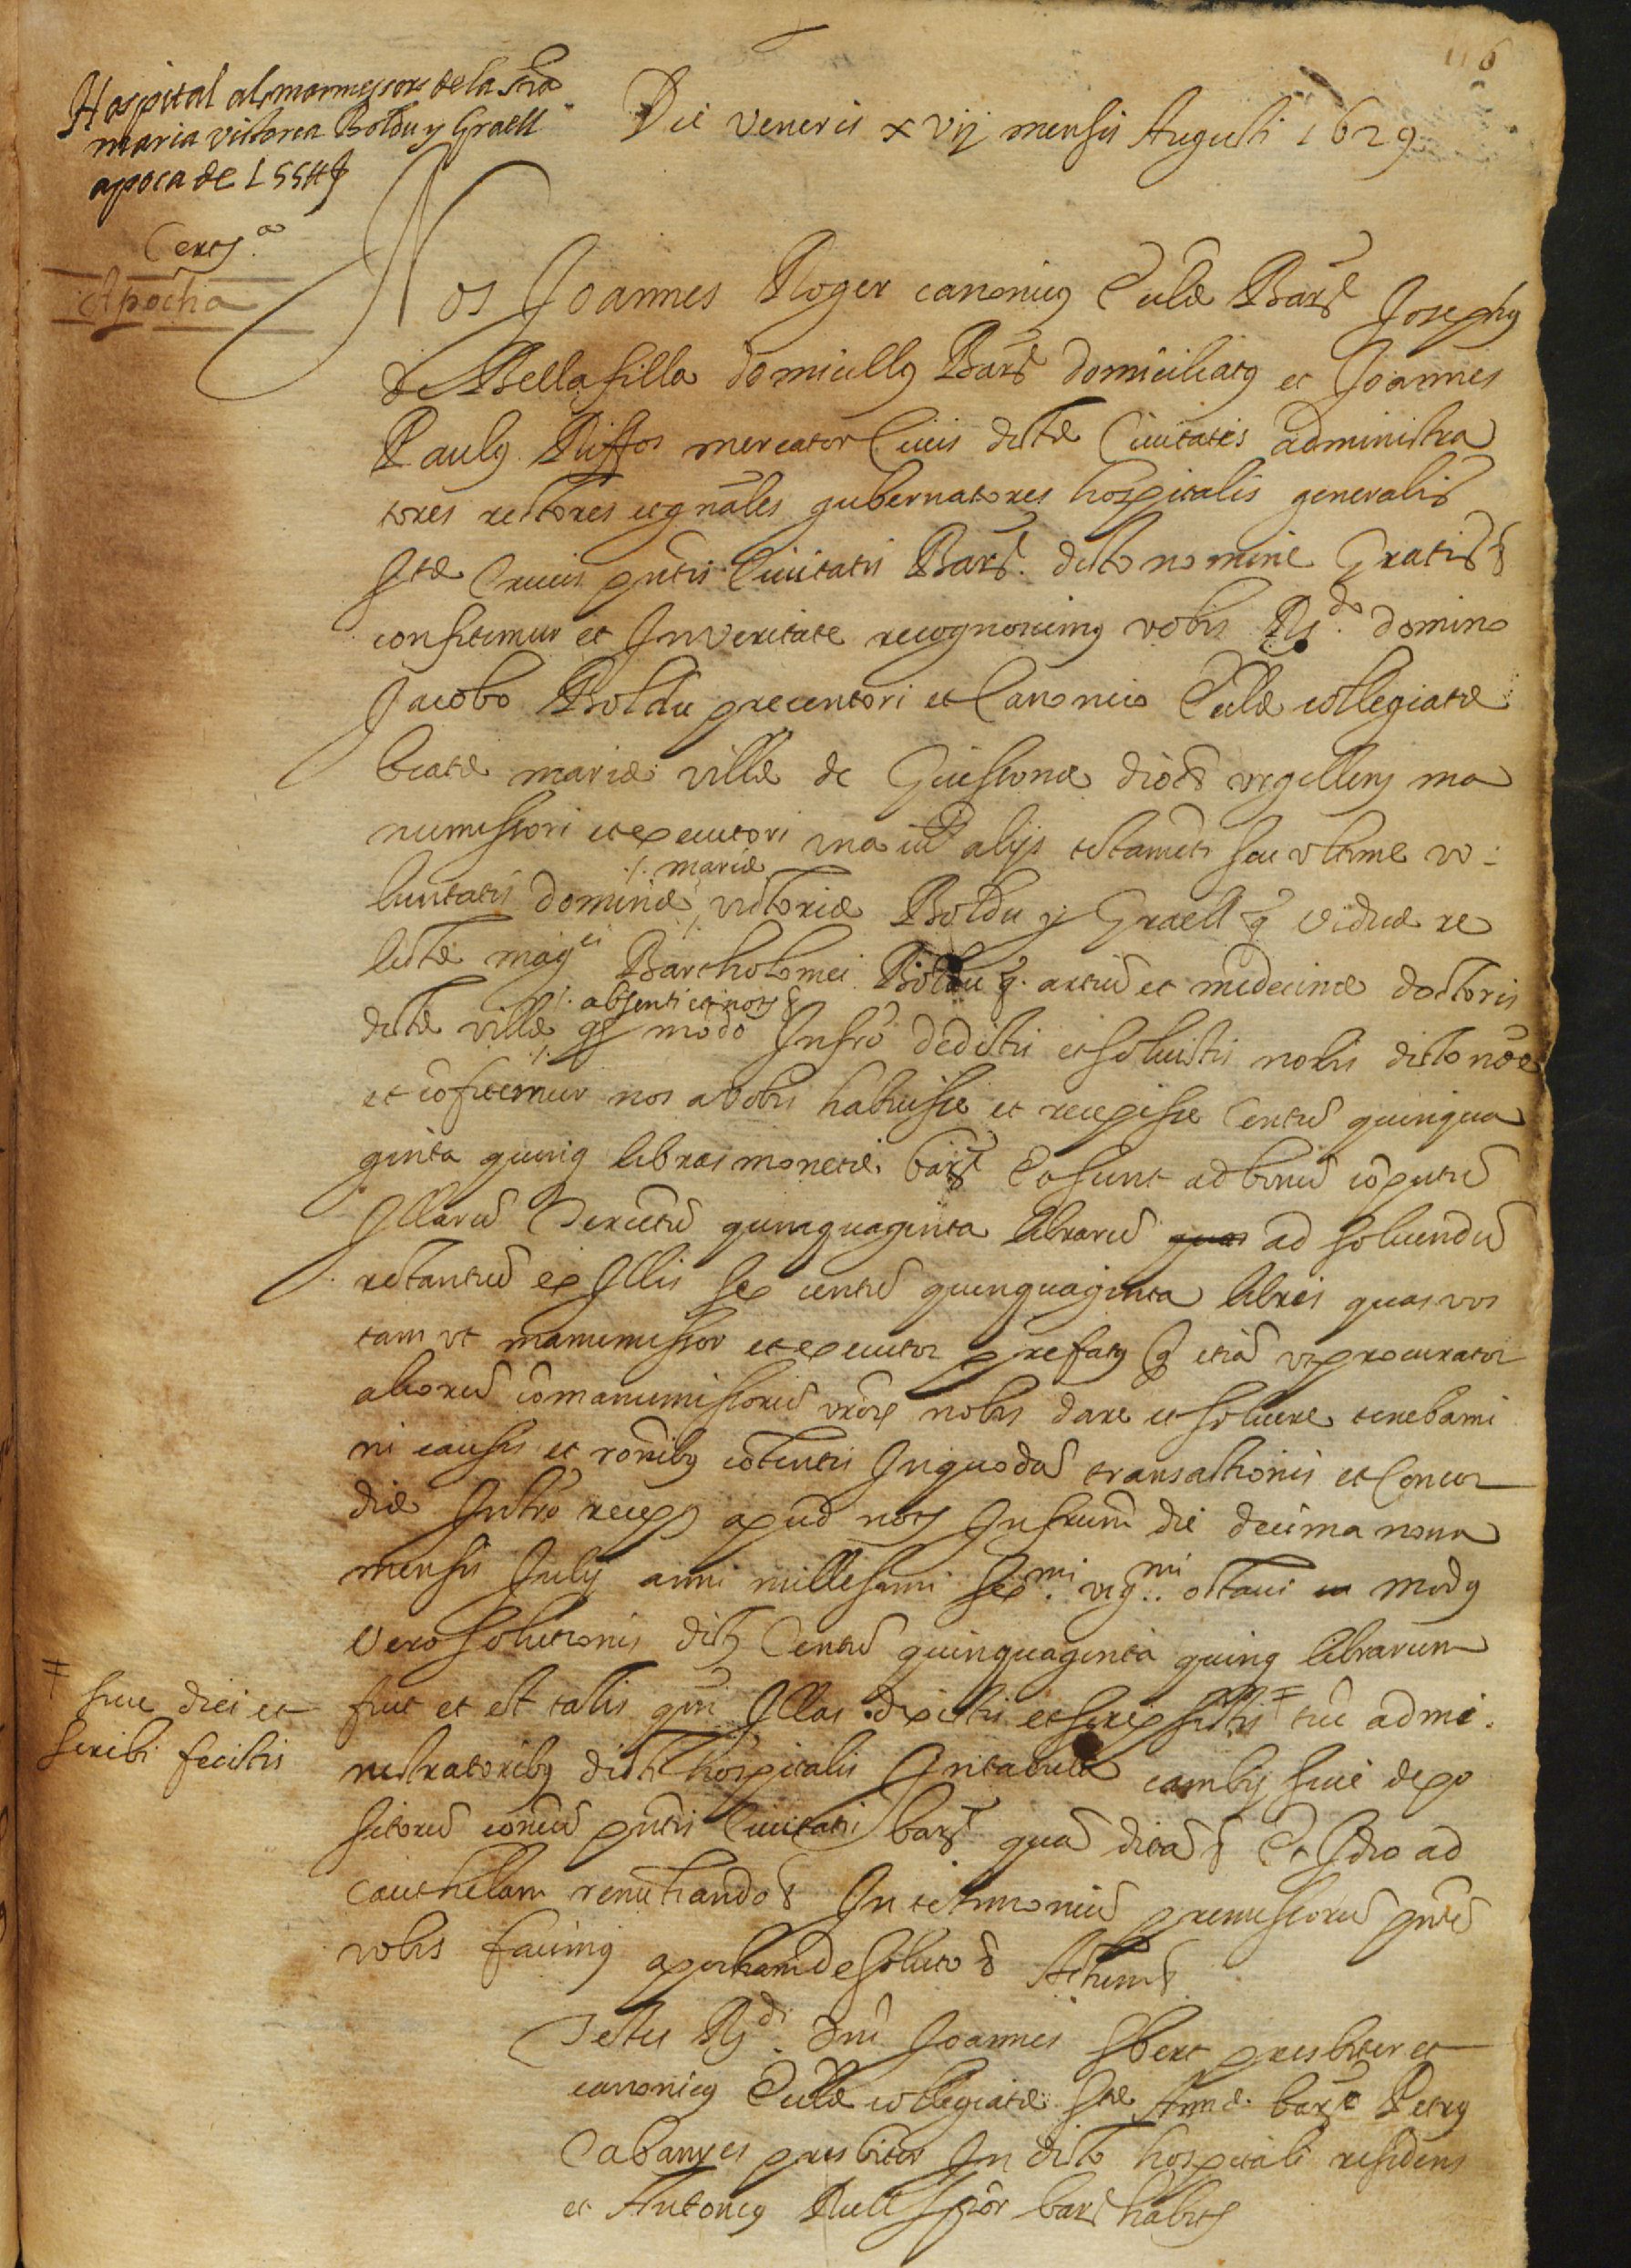 116
Hospital als marmessors de la Sra
maria victorea Boldu y Graell
apoca de 155 ℔
Certs.ª
Apocha
Die veneris xvij mensis Augusti 1629
Nos Joannes Roger canonicus Eccliæ Barñ Josephus
de Bellafilla domicellus Barñ domiciliatus et Joannes
Paulus Riffos mercator Civis dictæ Civitatis administra
tores rectores et gnãles gubernatores hospitalis generalis
Stæ Crucis pñtis Civitatis Barñ. dicto nomine Gratis &
confitemur et In veritate recognoscimus vobis Rdo. domino
Jacobo Boldu precentori et Canonico Eccliæ collegiatæ
beatæ mariæ villæ de Guissona diocs vrgellens ma
numissori et executori vna cũ alijs testamẽti seu vltime vo
luntatis dominæ ./. mariæ victoriæ Boldu y Graell q̃ viduæ re
lictæ magci Bartholomei Boldu q̃. artiũ et medecinæ doctoris
dictæ villæ ./. absenti et nots & qd modo Infrõ dedistis et solvistis nobis dicto nõe
et cõfitemur nos a vobis habuisse et recepisse Centũ quinqua
ginta quinq libras monetæ barñ Et sunt ad bonũ cõputũ
Illarũ Ducentũ quinquaginta librarũ ad solvendũ
restantiũ ex Illis sex centũ quinquaginta libris quas vos
tam vt manumissor et executor prefatus q̃ etiã vt procurator
aliorũ cõmanumissorũ vrõrũ nobis dare et solvere tenebami
ni causis et rõnibus cõtentis In quodã transactionis et Concor
diæ Instrõ recepto apud nots Infrũm die decima nona
mensis July anni millesimi sexmi. vigmi. octavi modus
vero solutionis dictarũ Centũ quinquaginta quinq librarum
fuit et est talis qm̃ Illas dixistis et scripsistis ‡ tũc admi
‡ sive dici et
scribi fecistis
nistratoribus dicti hospitalis In tabula cambij sive depo
sitorũ cõmũ pñtis Civitatis barñ quã ditã & Et Ideo ad
cauthellam renũtiando & In testimoniũ premissorũ pñtẽ
vobis facimus apocham de soluto & Actum &
Testes Rdi. dñi Joannes Sbert presbiter et
canonicus Eccliæ collegiatæ Stæ Annæ barñ Petrus
Cabanyes presbiter In dicto hospitali residens
et Antonius Rull scriptor barñ habits